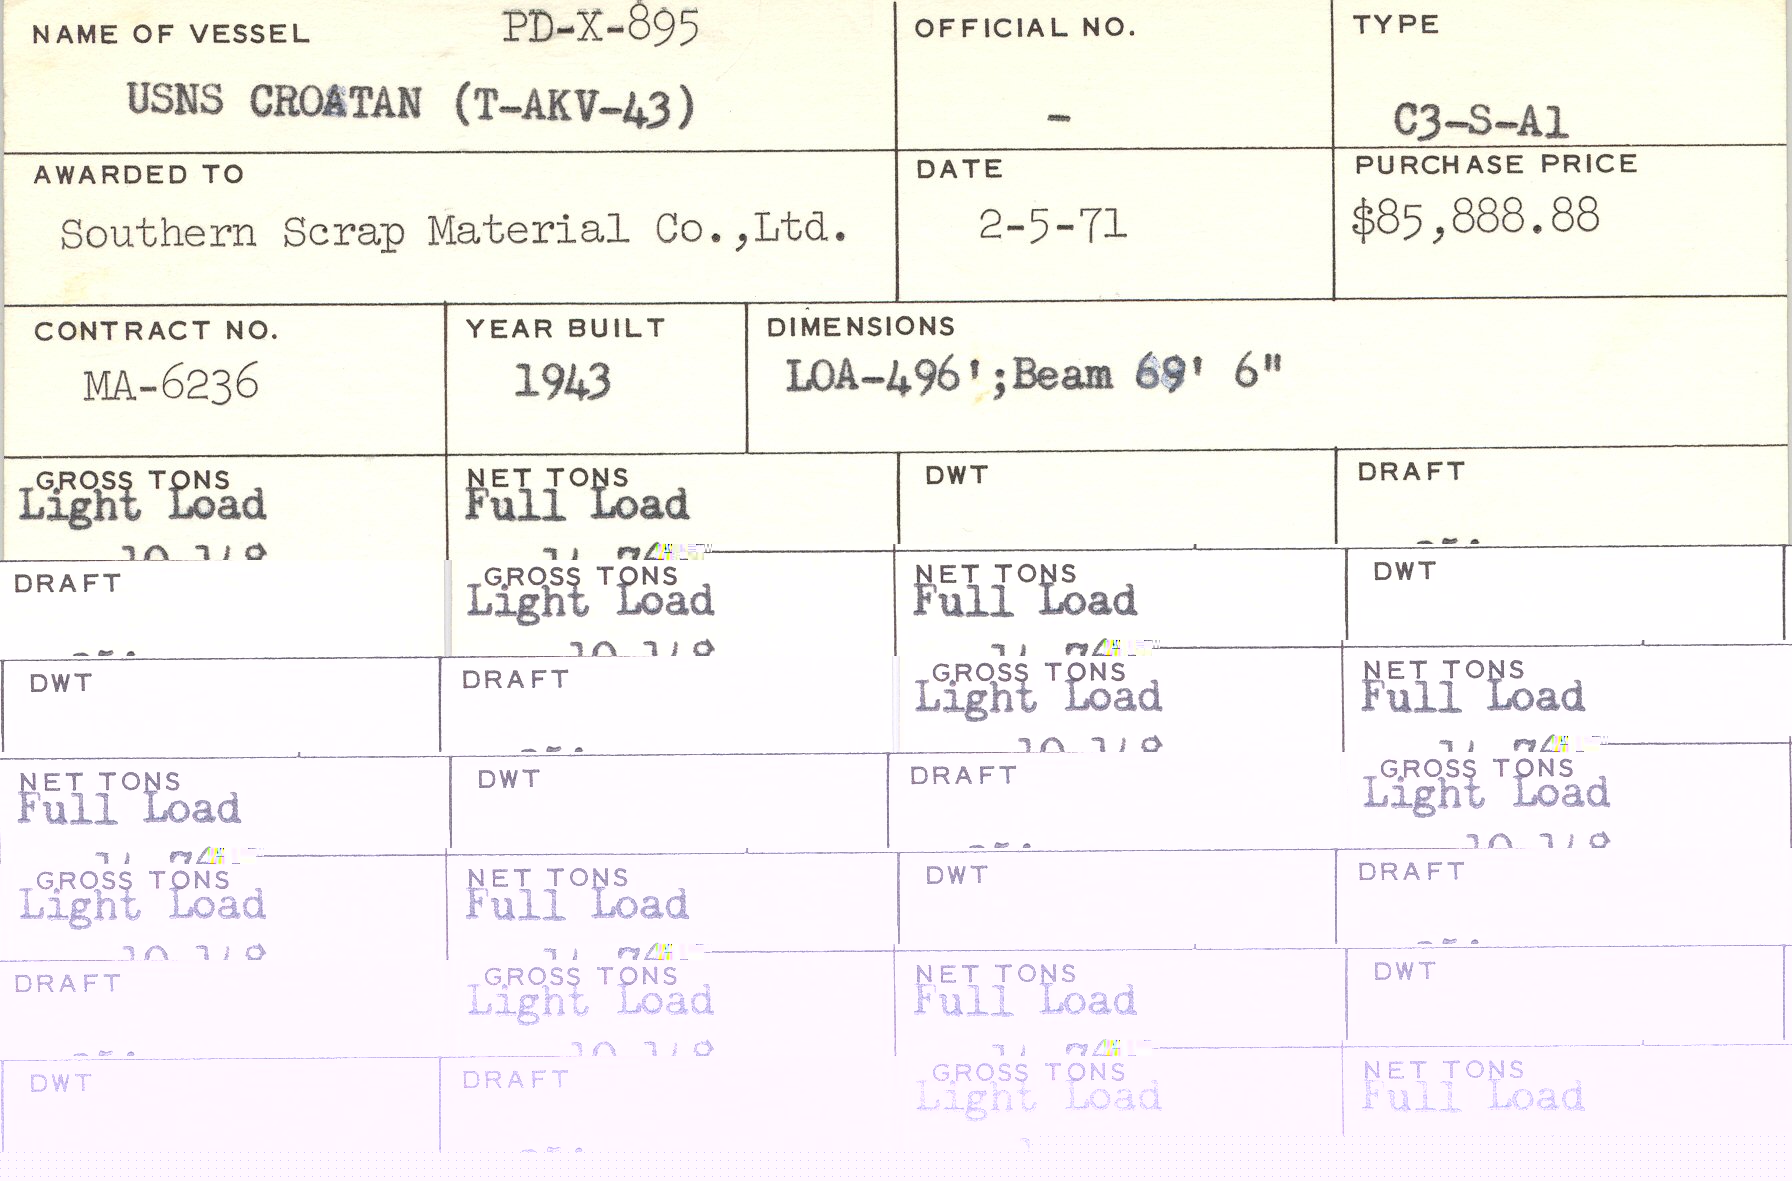 NAME OF VESSEL PD-X-895 OFFICIAL NO. TYPE
USNS CROATAN (T-AKV-43) - C3-S-A1
AWARDED TO DATE PURCHASE PRICE
Southern Scrap Material Co.,Ltd. 2-5-71 $85,888.88
CONTRACT NO. YEAR BUILT DIMENSIONS
MA-6236 1943 LOA-496';Beam 69' 6"
GROSS TONS NET TONS DWT DRAFT
Light Load Full Load
DRAFT GROSS TONS NET TONS DWT
Light Load Full Load
DWT DRAFT GROSS TONS NET TONS
Light Load Full Load
NET TONS DWT DRAFT GROSS TONS
Full Load Light Load
GROSS TONS NET TONS DWT DRAFT
Light Load Full Load
DRAFT GROSS TONS NET TONS DWT
Light Load Full Load
DWT DRAFT GROSS TONS NET TONS
Light Load Full Load